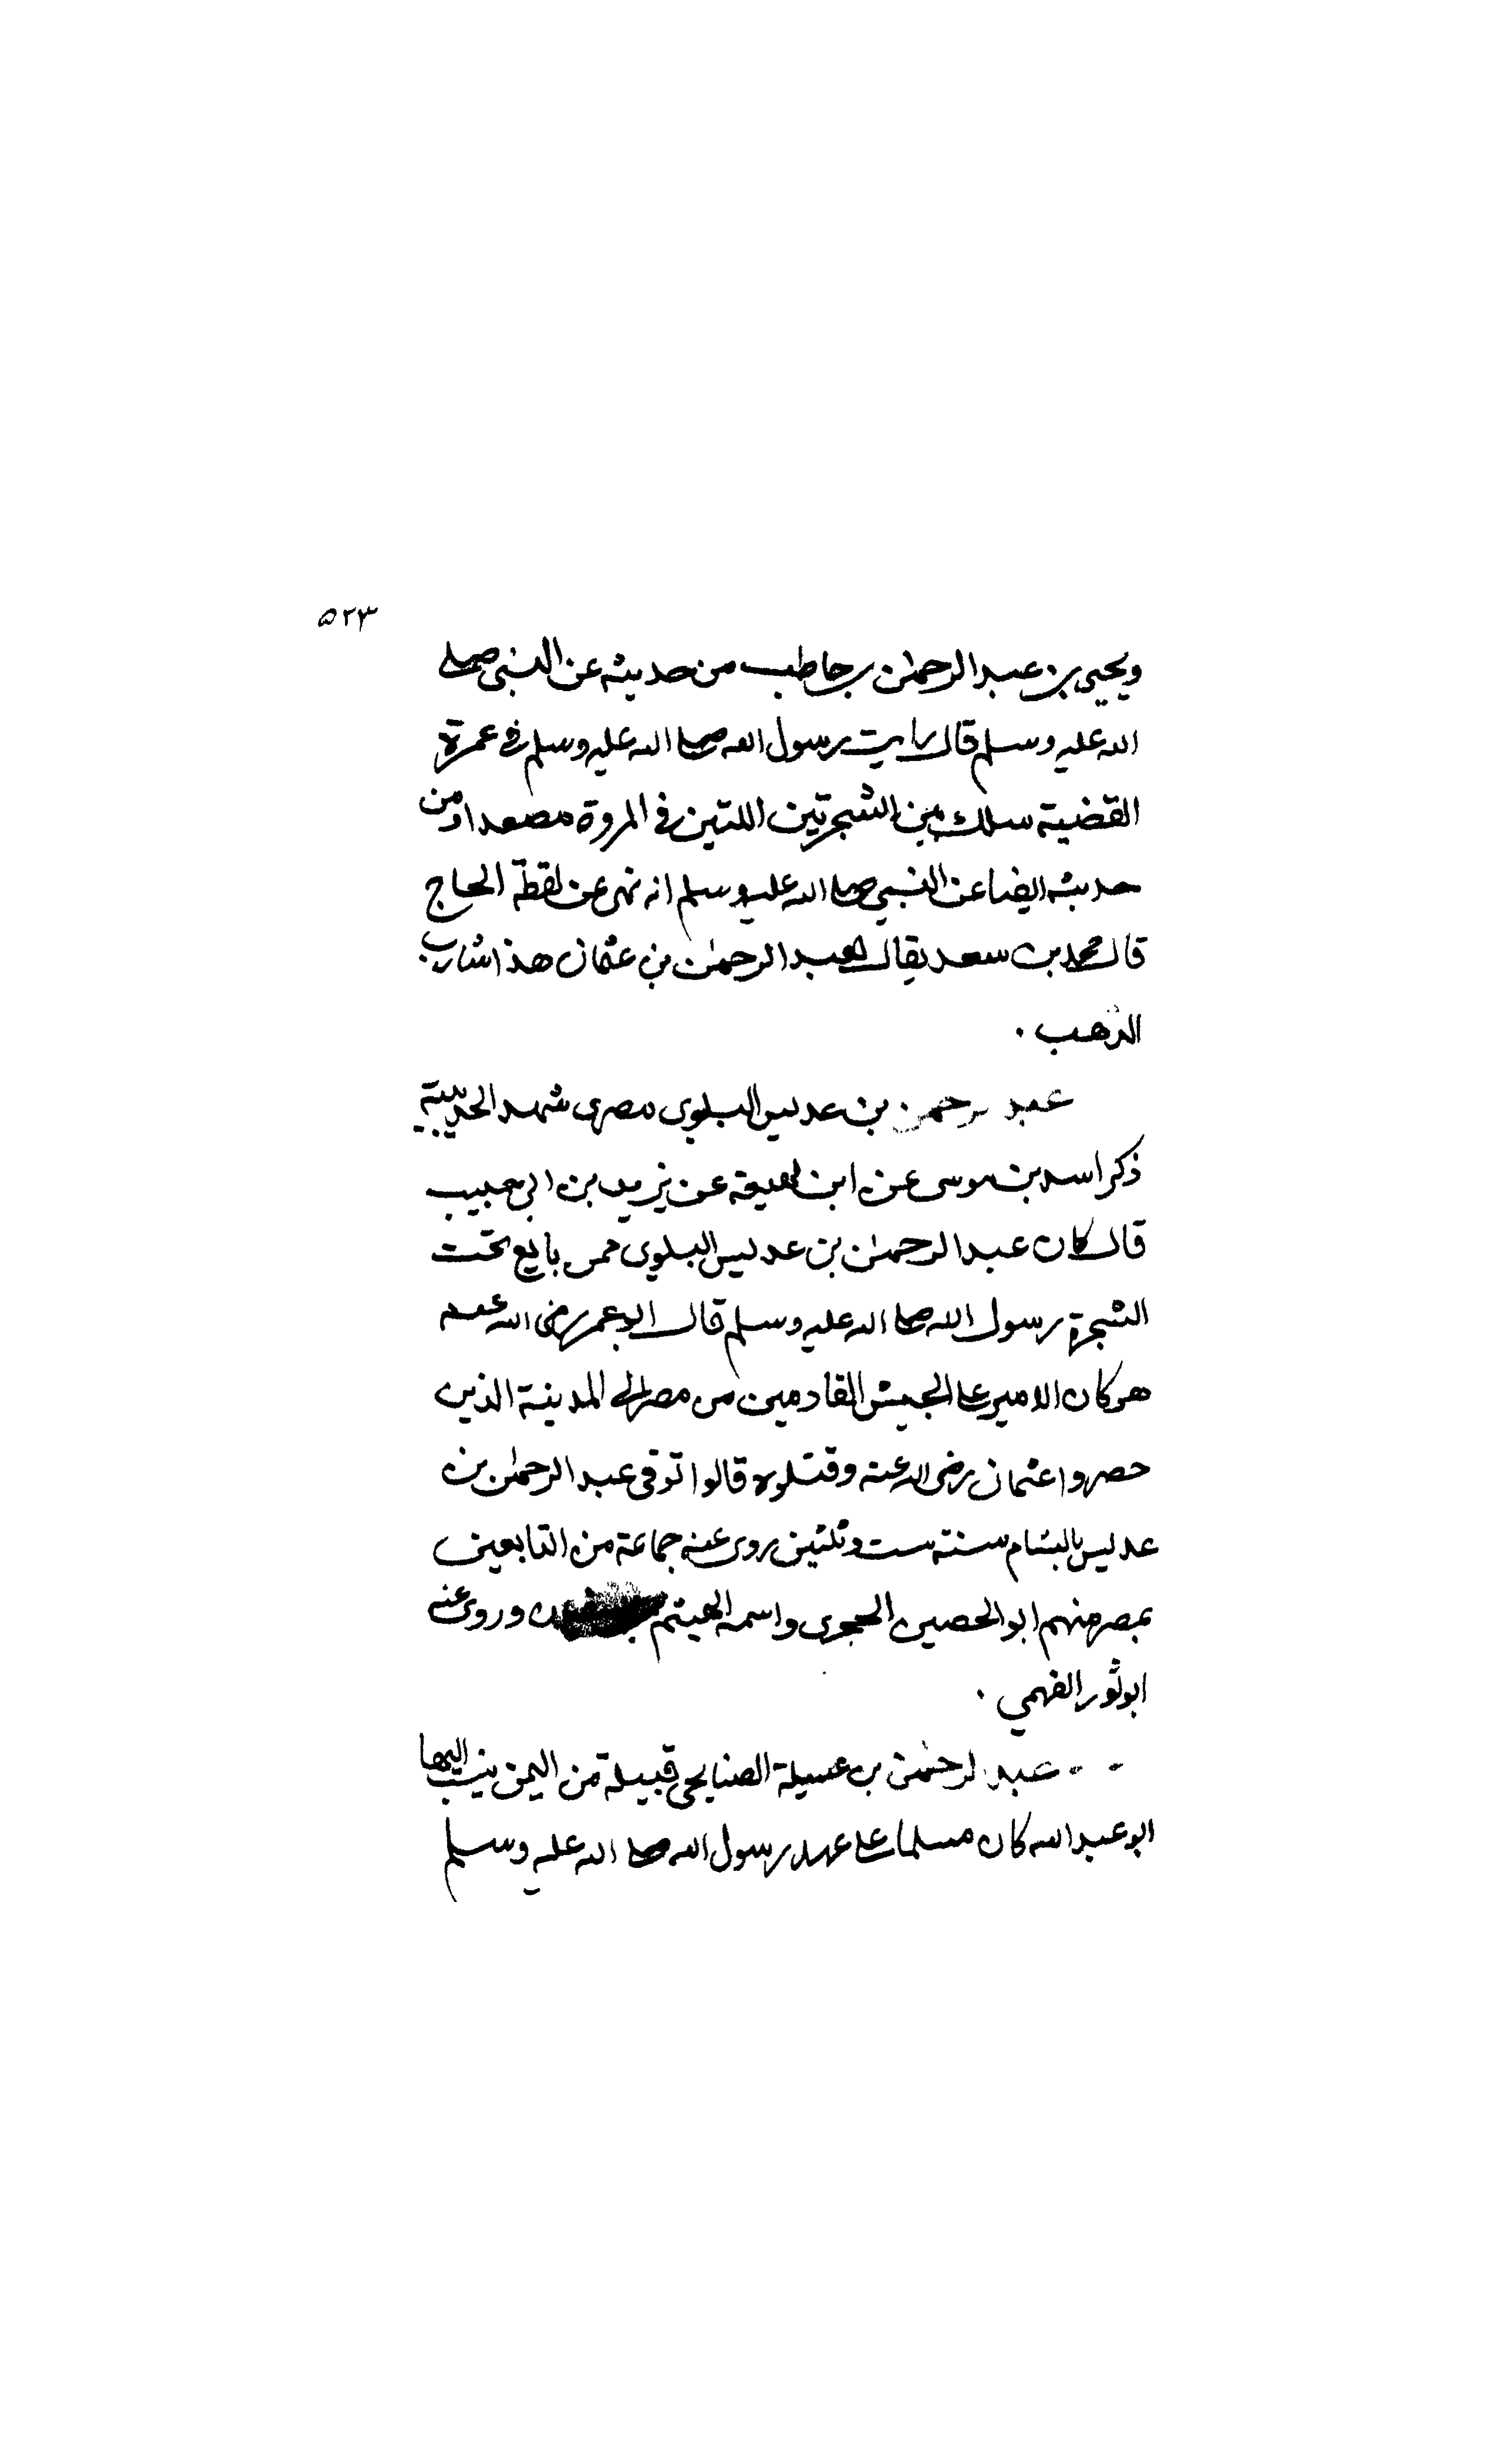 ٥٢٣
ويحيى بن عبد الرحمن بن حاطب من حديثه عن النبي صلى
الله عليه وسلم قال رايت رسول الله صلى الله عليه وسلم في عمرة
القضية سلك بين الشجرتين اللتين في المروة مصعدا ومن
حديثه ايضا عن النبي صلى الله عليه وسلم انه نهى عن لقطة الحاج
قال محمد بن سعد يقال لعبد الرحمن بن عثمان هذا شارب
الذهب .
عبد الرحمن بن عديس البلوي مصري شهد الحديبية
ذكر اسد بن موسى عن ابن لهيعة عن يزيد بن ابي حبيب
قال كان عبد الرحمن بن عديس البلوي ممن بايع تحت
الشجرة رسول الله صلى الله عليه وسلم قال ابو عمر رضى الله عنه
هو كان الامير على الجيش القادمين من مصر الى المدينة الذين
حصروا عثمان رضى الله عنه وقتلوه قالوا توفي عبد الرحمن بن
عديس بالشام سنة ست وثلثين روى عنه جماعة من التابعين
بمصر منهم ابو الحصين الحجري واسمه الهيثم وروى عنه
ابو ثور الفهمي .
عبد الرحمن بن عسيلة الصنابحي قبيلة من اليمن ينسب اليها
ابو عبد الله كان مسلما على عهد رسول الله صلى الله عليه وسلم